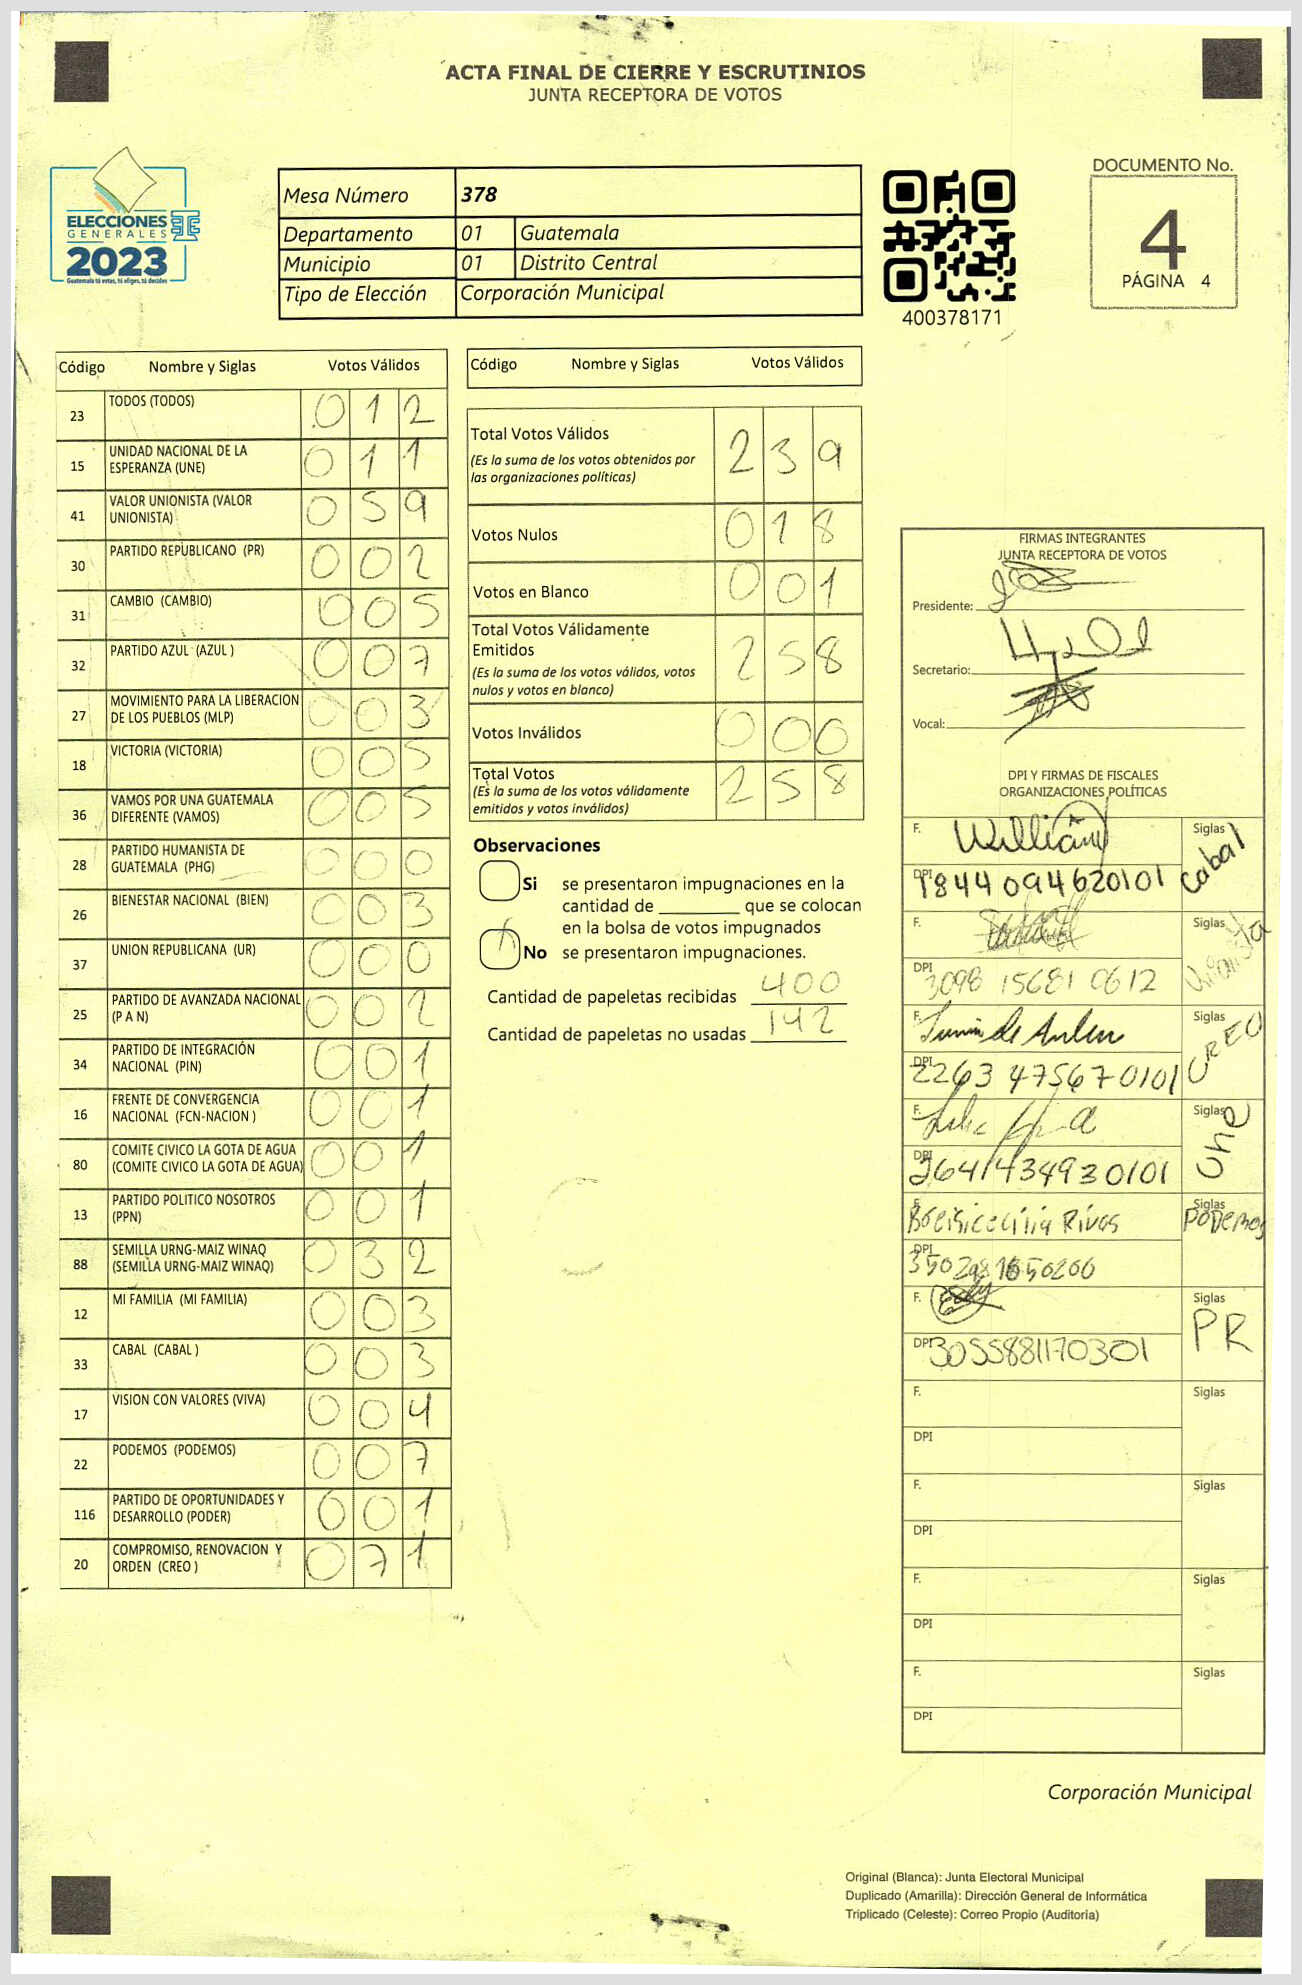 ACTA FINAL DE CIERRE Y ESCRUTINIOS
JUNTA RECEPTORA DE VOTOS
ELECCIONES
GENERALES
2023
Guatemala tú votas, tú eliges, tú decides
Mesa Número 378
Departamento 01 Guatemala
Municipio 01 Distrito Central
Tipo de Elección Corporación Municipal
400378171
DOCUMENTO No.
4
PÁGINA 4
Código Nombre y Siglas Votos Válidos
23 TODOS (TODOS) 0 1 2
15 UNIDAD NACIONAL DE LA
ESPERANZA (UNE) 0 1 1
41 VALOR UNIONISTA (VALOR
UNIONISTA) 0 5 9
30 PARTIDO REPUBLICANO (PR) 0 0 2
31 CAMBIO (CAMBIO) 0 0 5
32 PARTIDO AZUL (AZUL ) 0 0 7
27 MOVIMIENTO PARA LA LIBERACION
DE LOS PUEBLOS (MLP) 0 0 3
18 VICTORIA (VICTORIA) 0 0 5
36 VAMOS POR UNA GUATEMALA
DIFERENTE (VAMOS) 0 0 5
28 PARTIDO HUMANISTA DE
GUATEMALA (PHG) 0 0 0
26 BIENESTAR NACIONAL (BIEN) 0 0 3
37 UNION REPUBLICANA (UR) 0 0 0
25 PARTIDO DE AVANZADA NACIONAL
(P A N) 0 0 2
34 PARTIDO DE INTEGRACIÓN
NACIONAL (PIN) 0 0 1
16 FRENTE DE CONVERGENCIA
NACIONAL (FCN-NACION ) 0 0 1
80 COMITE CIVICO LA GOTA DE AGUA
(COMITE CIVICO LA GOTA DE AGUA) 0 0 1
13 PARTIDO POLITICO NOSOTROS
(PPN) 0 0 1
88 SEMILLA URNG-MAIZ WINAQ
(SEMILLA URNG-MAIZ WINAQ) 0 3 2
12 MI FAMILIA (MI FAMILIA) 0 0 3
33 CABAL (CABAL ) 0 0 3
17 VISION CON VALORES (VIVA) 0 0 4
22 PODEMOS (PODEMOS) 0 0 7
116 PARTIDO DE OPORTUNIDADES Y
DESARROLLO (PODER) 0 0 1
20 COMPROMISO, RENOVACION Y
ORDEN (CREO ) 0 7 1
Código Nombre y Siglas Votos Válidos
Total Votos Válidos 2 3 9
(Es la suma de los votos obtenidos por
las organizaciones políticas)
Votos Nulos 0 1 8
Votos en Blanco 0 0 1
Total Votos Válidamente
Emitidos 2 5 8
(Es la suma de los votos válidos, votos
nulos y votos en blanco)
Votos Inválidos 0 0 0
Total Votos 2 5 8
(Es la suma de los votos válidamente
emitidos y votos inválidos)
Observaciones
Si se presentaron impugnaciones en la
cantidad de ________ que se colocan
en la bolsa de votos impugnados
No se presentaron impugnaciones.
Cantidad de papeletas recibidas 400
Cantidad de papeletas no usadas 142
FIRMAS INTEGRANTES
JUNTA RECEPTORA DE VOTOS
Presidente:
Secretario:
Vocal:
DPI Y FIRMAS DE FISCALES
ORGANIZACIONES POLÍTICAS
F. William Siglas Cabal
DPI 1844 094620101
F. Siglas Unionista
DPI 3098 15681 0612
F. Siglas CREO
DPI 2263 475670101
F. Siglas Une
DPI 2641434930101
F. Rivas Siglas PODEMOS
DPI
F. Siglas PR
DPI 3055881170301
F. Siglas
DPI
F. Siglas
DPI
F. Siglas
DPI
F. Siglas
DPI
Corporación Municipal
Original (Blanca): Junta Electoral Municipal
Duplicado (Amarilla): Dirección General de Informática
Triplicado (Celeste): Correo Propio (Auditoría)